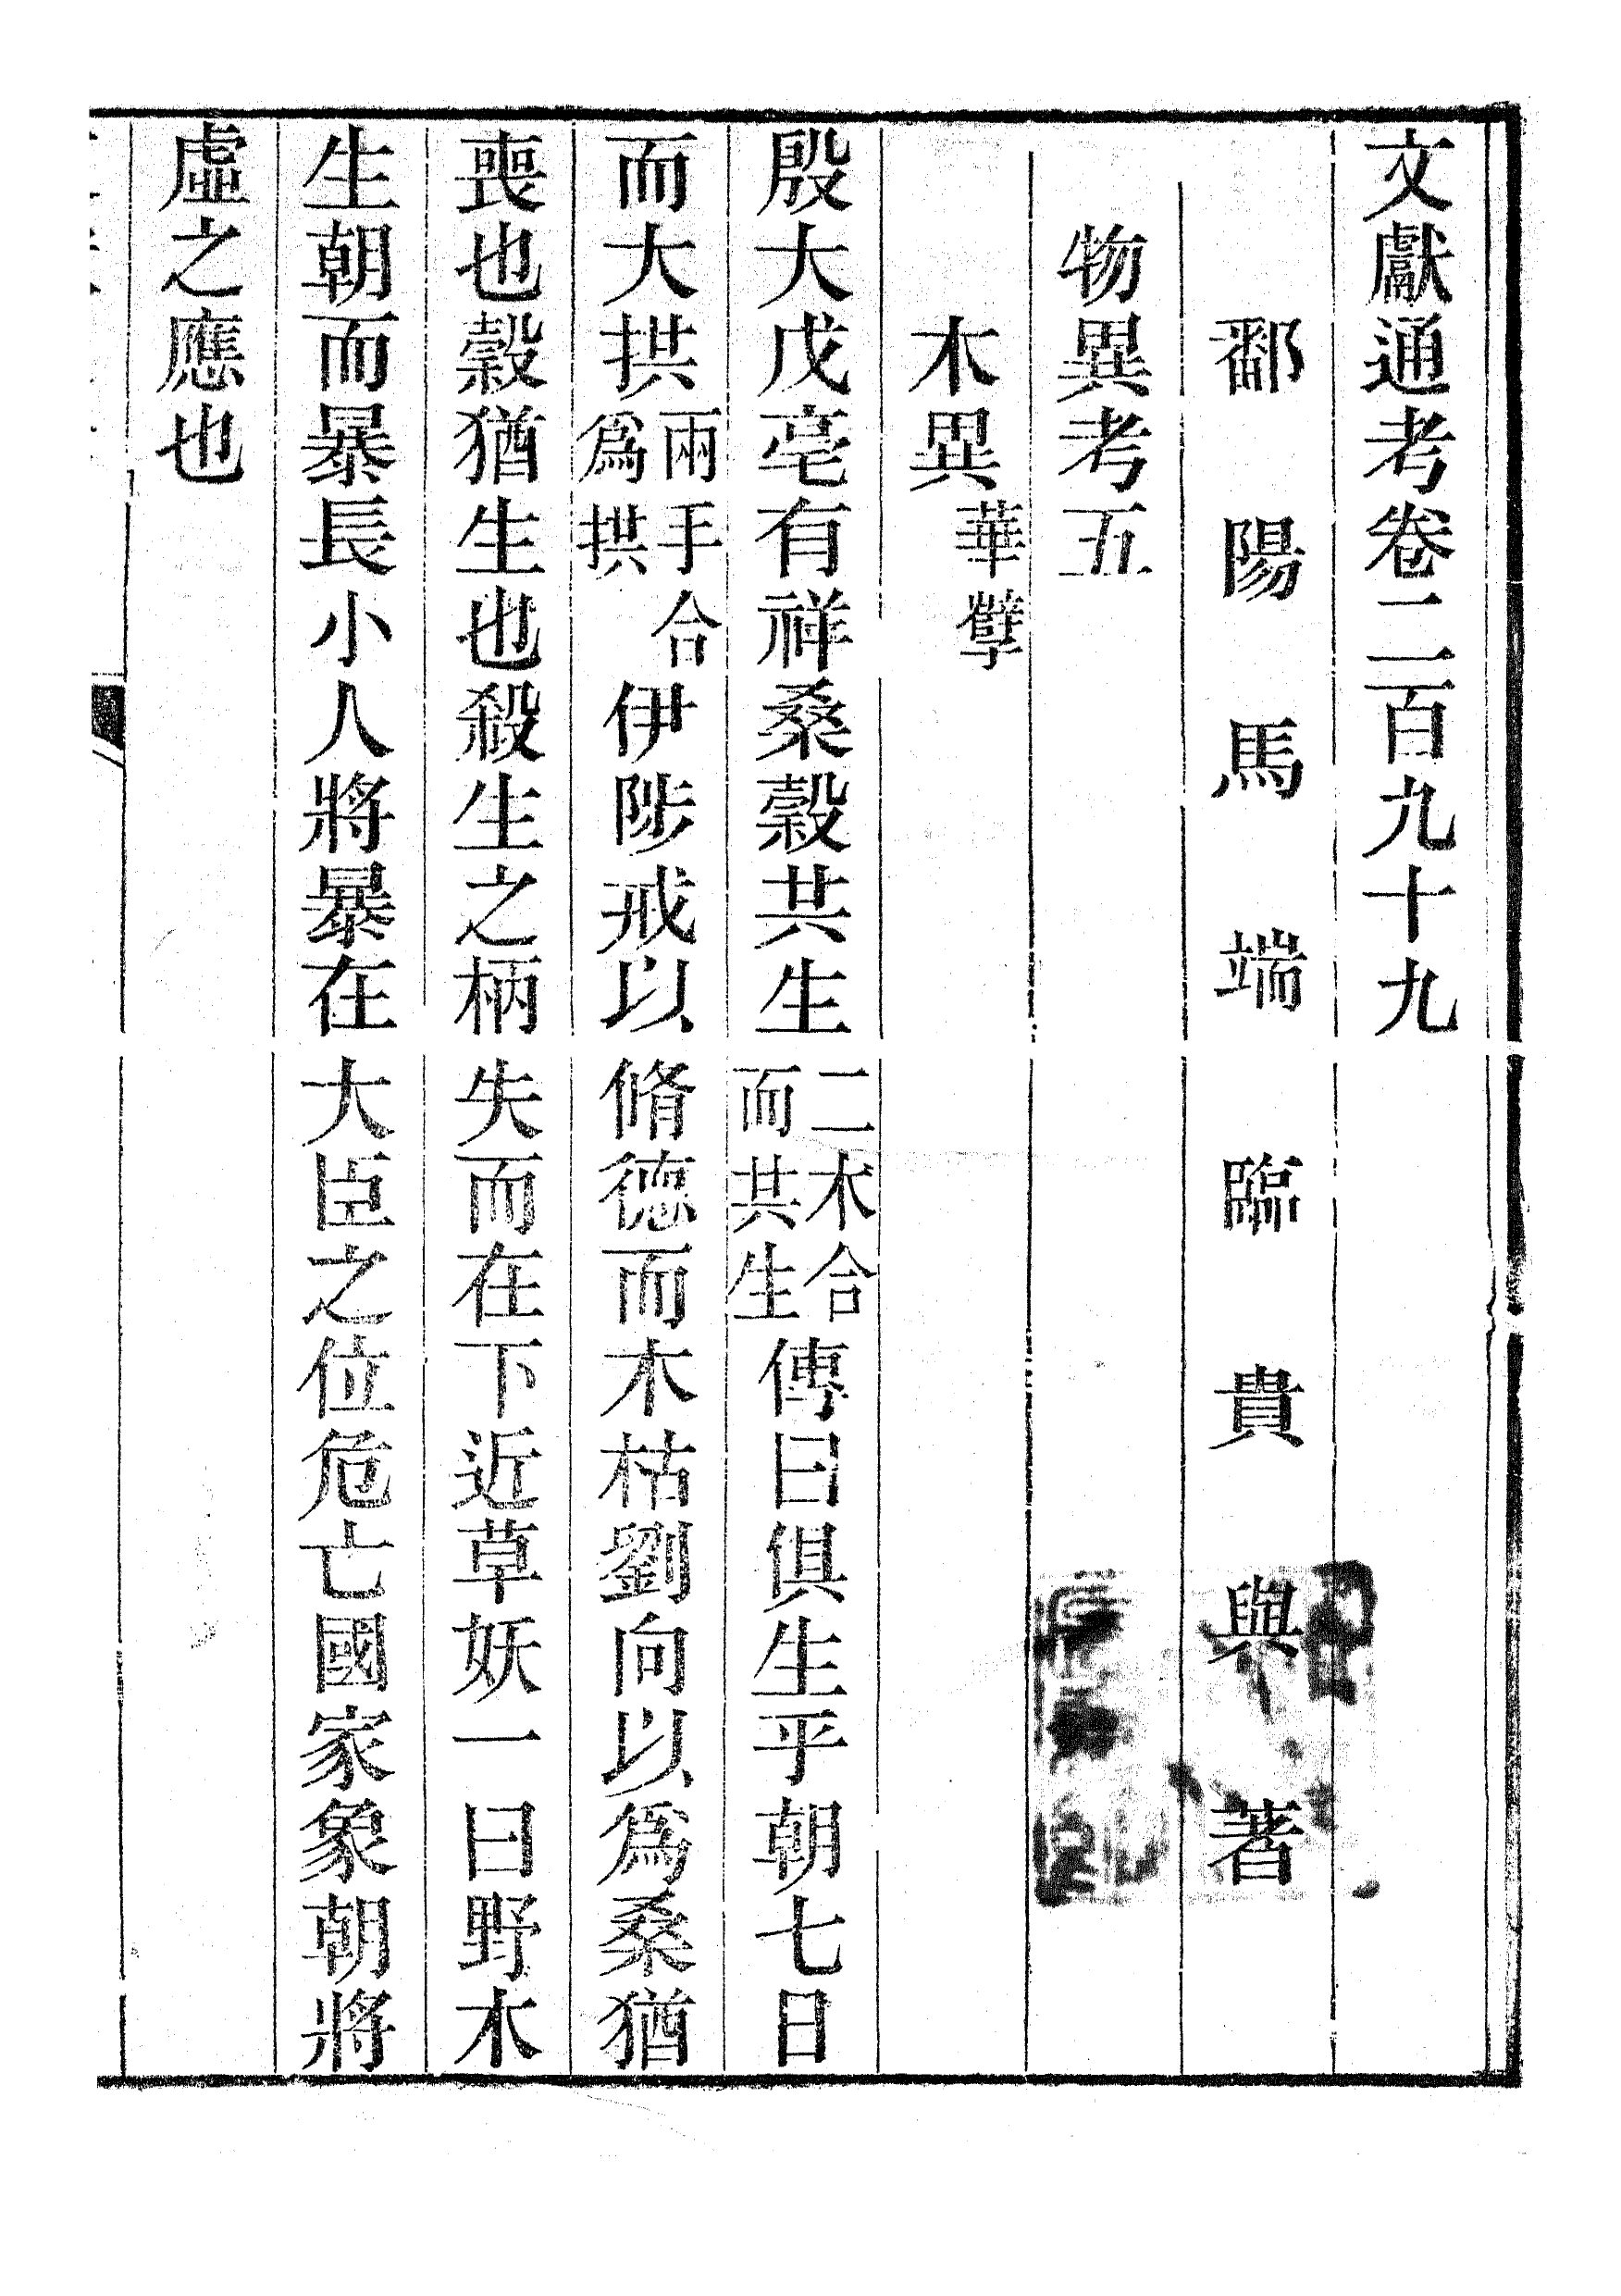 文獻通考卷二百九十九
鄱陽馬端臨貴與著
物異考五
木異華孼
殷大戊亳有祥桑榖共生二木合而共生傳曰俱生乎朝七日
而大拱兩手合爲拱伊陟戒以脩德而木枯劉向以爲桑猶
喪也榖猶生也殺生之柄失而在下近草妖一曰野木
生朝而暴長小人將暴在大臣之位危亡國家象朝將
虛之應也